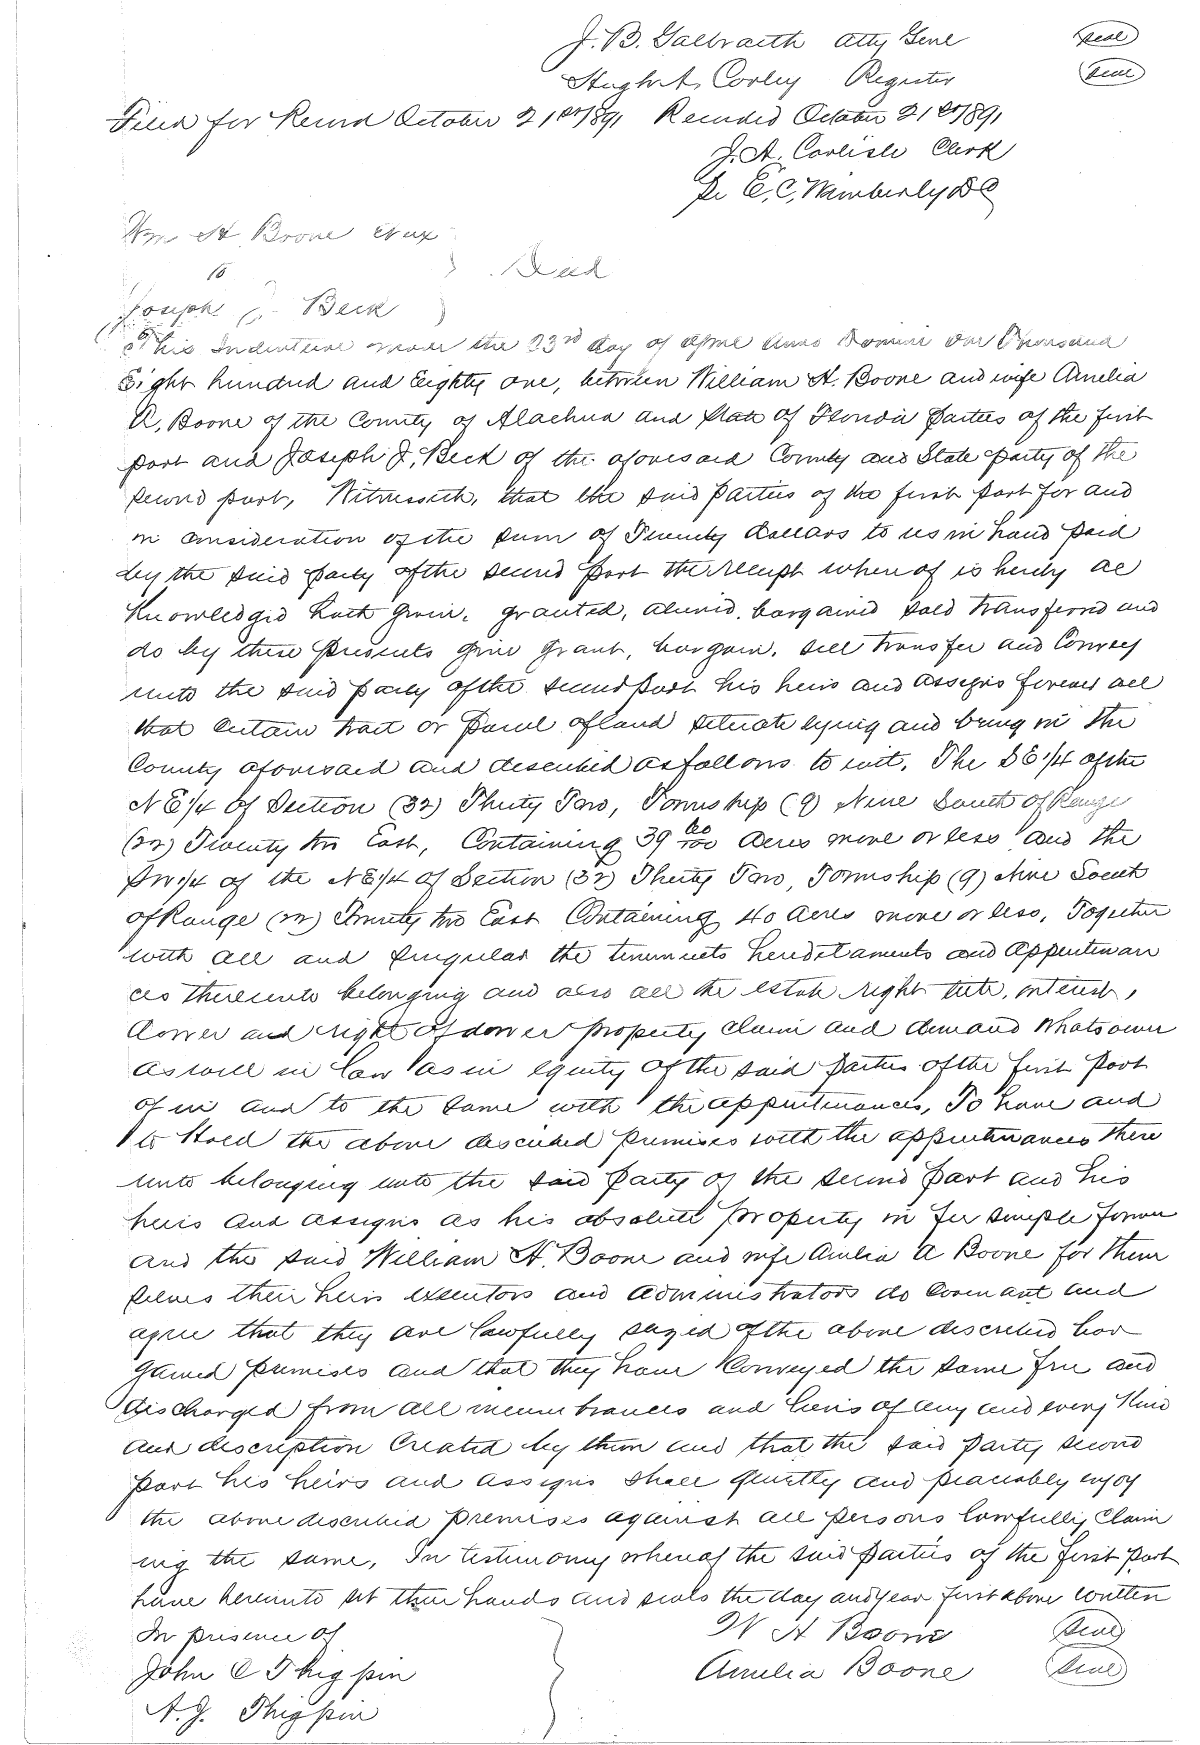 J. B. Galbraith Atty Genl (seal)
Hugh A. Corley Register (seal)
Filed for Record October 21st 1891 Recorded October 21st 1891
J. A. Carlisle Clerk
Pr E. C. Wimberly DC
Wm H Boone & ux
to } Deed
Joseph J. Beck
This Indenture made the 23rd day of April Anno Domini One Thousand
Eight hundred and Eighty one, between William H. Boone and wife Amelia
A, Boone of the County of Alachua and State of Florida parties of the first
part and Joseph J, Beck of the aforesaid County and State party of the
second part, Witnesseth, that the said parties of the first part for and
in consideration of the sum of Twenty dollars to us in hand paid
by the said party of the second part the receipt where of is hereby ac
knowledgid hath given, granted, aliened, bargained sold transferred and
do by these presents give grant, bargain, sell transfer and convey
unto the said party of the second part his heirs and assigns forever all
that certain tract or parcel of land situate lying and being in the
County aforesaid and described as follows to wit, The SE 1/4 of the
NE 1/4 of Section (32) Thirty Two, Township (9) Nine South of Range
(22) Twenty two East, Containing 39 60/100 acres more or less and the
SW 1/4 of the NE 1/4 of Section (32) Thirty Two, Township (9) Nine South
of Range (22) Twenty two East Containing 40 acres more or less, Together
with all and singular the tenements hereditaments and appurtenan
ces thereunto belonging and also all the estate right title, interest,
dower and right of dower property claim and demand whatsoever
as well in law as in equity of the said parties of the first part
of in and to the same with the appurtenances, To have and
to Hold the above described premises with the appurtenances there
unto belonging unto the said party of the second part and his
heirs and assigns as his absolute property in fee simple forever
and the said William H. Boone and wife Amelia A Boone for them
selves their heirs executors and administrators do covenant and
agree that they are lawfully seized of the above described bar
gained premises and that they have conveyed the same free and
discharged from all incumbrances and liens of any and every kind
and description created by them and that the said party second
part his heirs and assigns shall quietly and peaceably enjoy
the above described premises against all persons lawfully claim
ing the same, In testimony whereof the said parties of the first part
have hereunto set their hands and seals the day and year first above written
In presence of W H Boone (seal)
John C Thigpin Amelia Boone (seal)
A. J. Thigpin